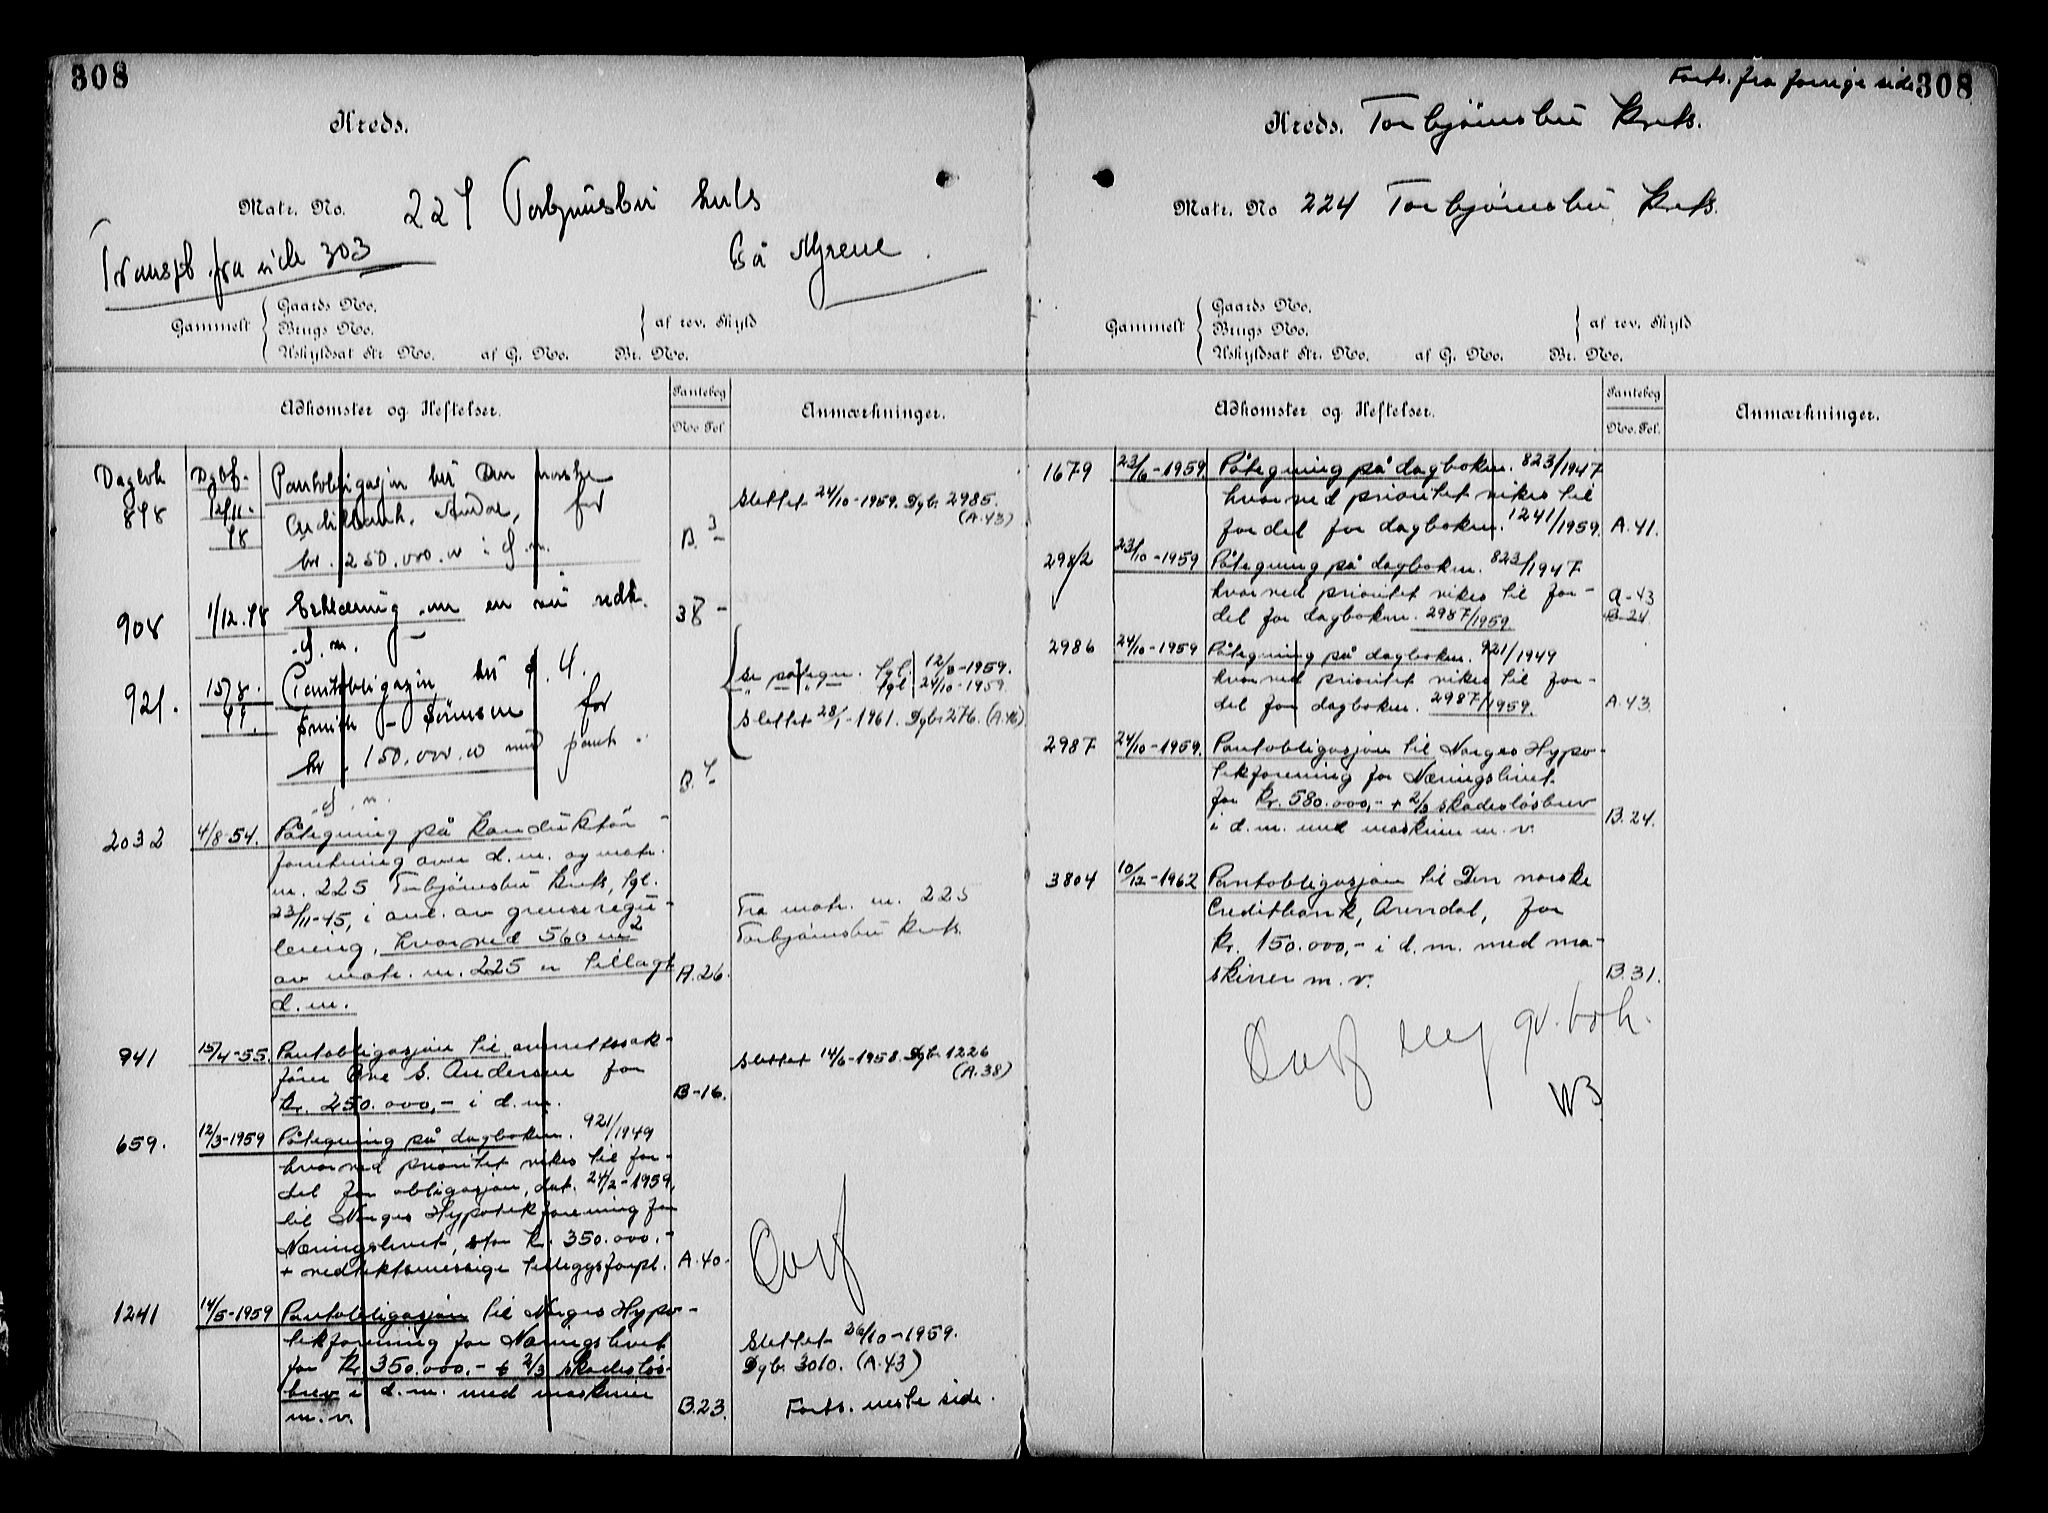 308
Kreds.
Matr. No. 224 Torbjørnsbu kreds
på Myrene.
Transp. fra side 303
Gammelt
Gaards No.
Brugs No.
Uskyldsat Str. No. af G. No. Br. No.
af rev. Skyld
Adkomster og Heftelser.
Pantebog
No Fol.
Anmærkninger.
Dagbok Dgbf.
848 12/11-48 Pantobligasjon til Den norske
Creditbank, Arendal, for
kr. 250.000.00 i d.m. B.3
Slettet 24/10-1959. Dgb. 2985.
(A.43)
908 1/12.48 Erklæring om en vei vedk.
d.m. 38
921. 15/8.49. Pantobligasjon til
Smith - Sørensen for
kr. 150.000.00 med pant
i d.m. B.4
Se påtegn. tgl. 12/3-1959.
" " tgl. 24/10-1959.
Slettet 28/1-1961. Dgb. 276. (A.46)
2032 4/8-54. Påtegning på konduktør-
forretning over d.m. og matr.
nr. 225 Torbjørnsbu krets, tgl.
23/11-45, i anl. av grenseregu-
lering, hvorved 560 m2
av matr. nr. 225 er tillagt
d.m. A.26.
Fra matr. nr. 225
Torbjørnsbu krets.
941 15/4-55. Pantobligasjon til overrettssak-
fører Ove S. Andersen for
kr. 250.000,- i d.m. B-16.
Slettet 14/6-1958. Dgb. 1226
(A.38)
659. 12/3-1959 Påtegning på dagboknr. 921/1949
hvorved prioritet vikes til for-
del for obligasjon, dat. 24/2-1959,
til Norges Hypotekforening for
Næringslivet, stor kr. 350.000.-
+ vedtektsmessige tilleggsforpl. A.40.
Overf
1241 14/5-1959 Pantobligasjon til Norges Hypo-
tekforening for Næringslivet
for kr. 350.000.- + 2/3 skadesløs-
brev i d.m. med maskiner
m.v. B.23.
Slettet 26/10-1959.
Dgb. 3010. (A.43)
Forts. neste side.
Forts. fra forrige side 308
Kreds. Torbjørnsbu krets.
Matr. No 224 Torbjørnsbu krets.
Gammelt
Gaards No.
Brugs No.
Uskyldsat Str. No. af G. No. Br. No.
af rev. Skyld
Adkomster og Heftelser.
Pantebog
No. Fol.
Anmærkninger.
1679 23/6-1959 Påtegning på dagboknr. 823/1947
hvorved prioritet vikes til
fordel for dagboknr. 1241/1959. A.41.
2982 23/10-1959 Påtegning på dagboknr. 823/1947
hvorved prioritet vikes til for- A-43
del for dagboknr. 2987/1959 B-24
2986 24/10-1959 Påtegning på dagboknr. 921/1949
hvorved prioritet vikes til for-
del for dagboknr. 2987/1959. A.43.
2987 24/10-1959. Pantobligasjon til Norges Hypo-
tekforening for Næringslivet
for kr. 580.000,- + 2/3 skadesløsbrev
i d.m. med maskiner m.v. B.24.
3804 10/12-1962 Pantobligasjon til Den norske
Creditbank, Arendal, for
kr. 150.000,- i d.m. med ma-
skiner m.v. B.31.
Overf